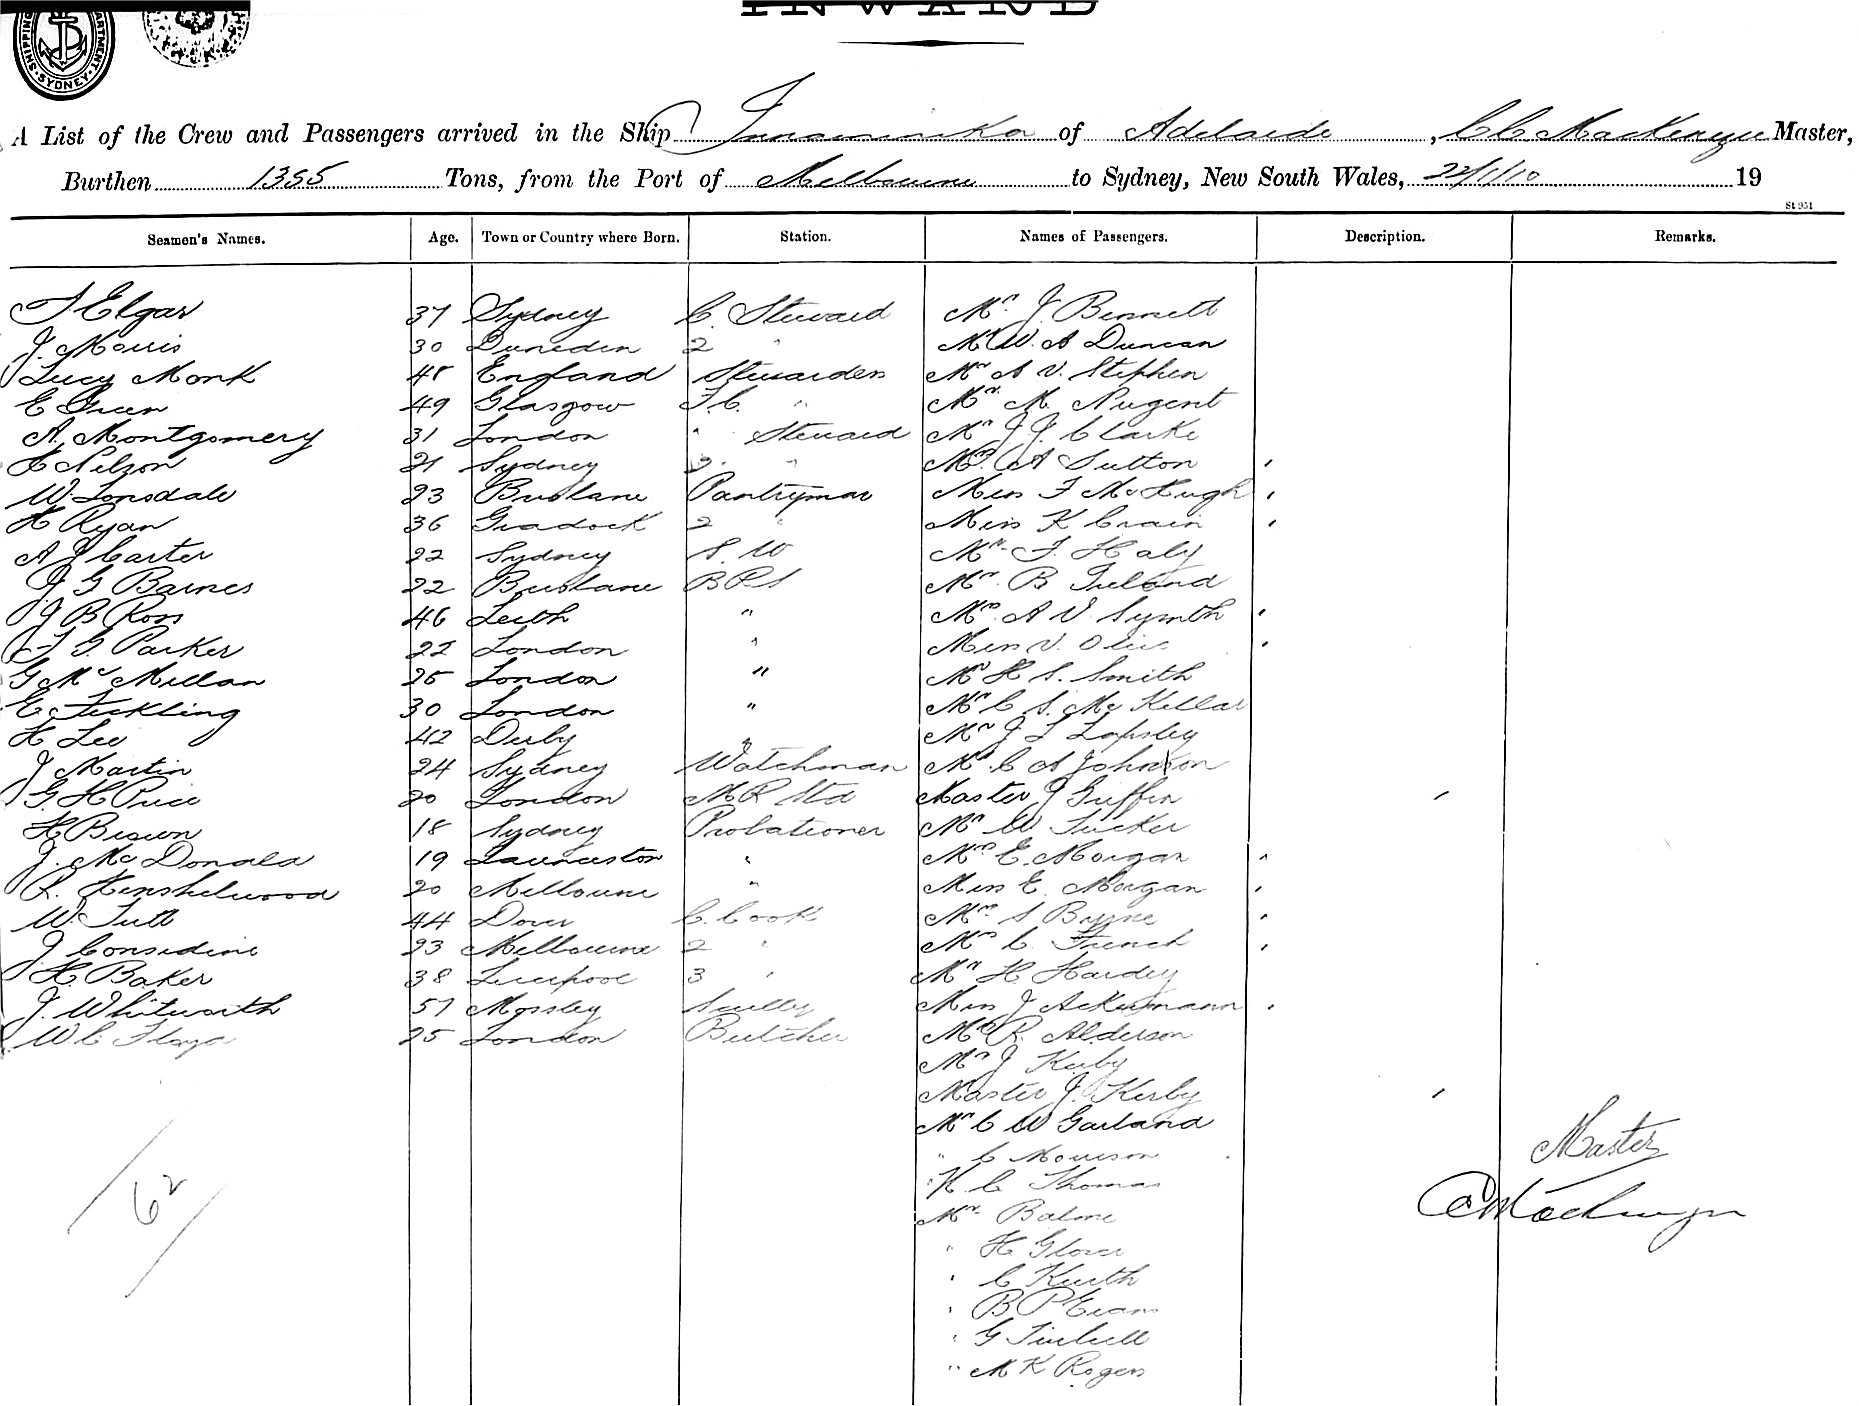 INWARD
SHIPPING DEPARTMENT SYDNEY
A List of the Crew and Passengers arrived in the Ship Innamincka of Adelaide, C C MacKenzie Master,
Burthen 1355 Tons, from the Port of Melbourne to Sydney, New South Wales, 22/1/10 19
St 951
Seamen's Names. Age. Town or Country where Born. Station. Names of Passengers. Description. Remarks.
Elgar 37 Sydney C. Steward Mr J. Bennett
J. Morris 30 Dunedin 2 " Mr W. A Duncan
Lucy Monk 48 England Stewardess Mr A V. Stephen
E Green 49 Glasgow F.C. " Mr M. Nugent
A. Montgomery 31 London " Steward Mr J J. Clarke
Nelson 21 Sydney " Mrs A Sutton
W. Lonsdale 23 Brisbane Pantryman Miss F McHugh
H Ryan 36 Gradock 2 " Miss K Crain
A J Carter 22 Sydney S. W Mr F. Haly
J G Barnes 22 Brisbane B R S Mr B Ireland
J B Ross 46 Leith " Mrs A V Symth
F G. Parker 22 London " Miss V.
G Mc Millan 25 London " Mr H S. Smith
E Fickling 30 London " Mr C S. Mc Kellar
H Lee 42 Derby " Mr J L Lapsley
J Martin 24 Sydney Watchman Mr C A Johnson
G H Price 20 London M R Std Master J Griffin
H Brown 18 Sydney Probationer Mr W Tucker
J. Mc Donald 19 Launceston " Mrs E. Morgan
R. Henshelwood 20 Melbourne " Miss E. Morgan
W. Tutt 44 Dover C. Cook Mrs S Byrne
J Considine 23 Melbourne 2 " Mrs C. French
H. Baker 38 Liverpool 3 " Mr H. Hardey
J. Whitworth 57 Mossley Scully Miss J Ackermann
W C 25 London Butcher Mr R. Alderson
Mr J Kerby
Master J. Kerby
Mr C W Garland
" C Morrison
" H C Thomas
Mr
" H Glover
" C Keith
" B P Evans
" G
" M K Rogers
Master
62